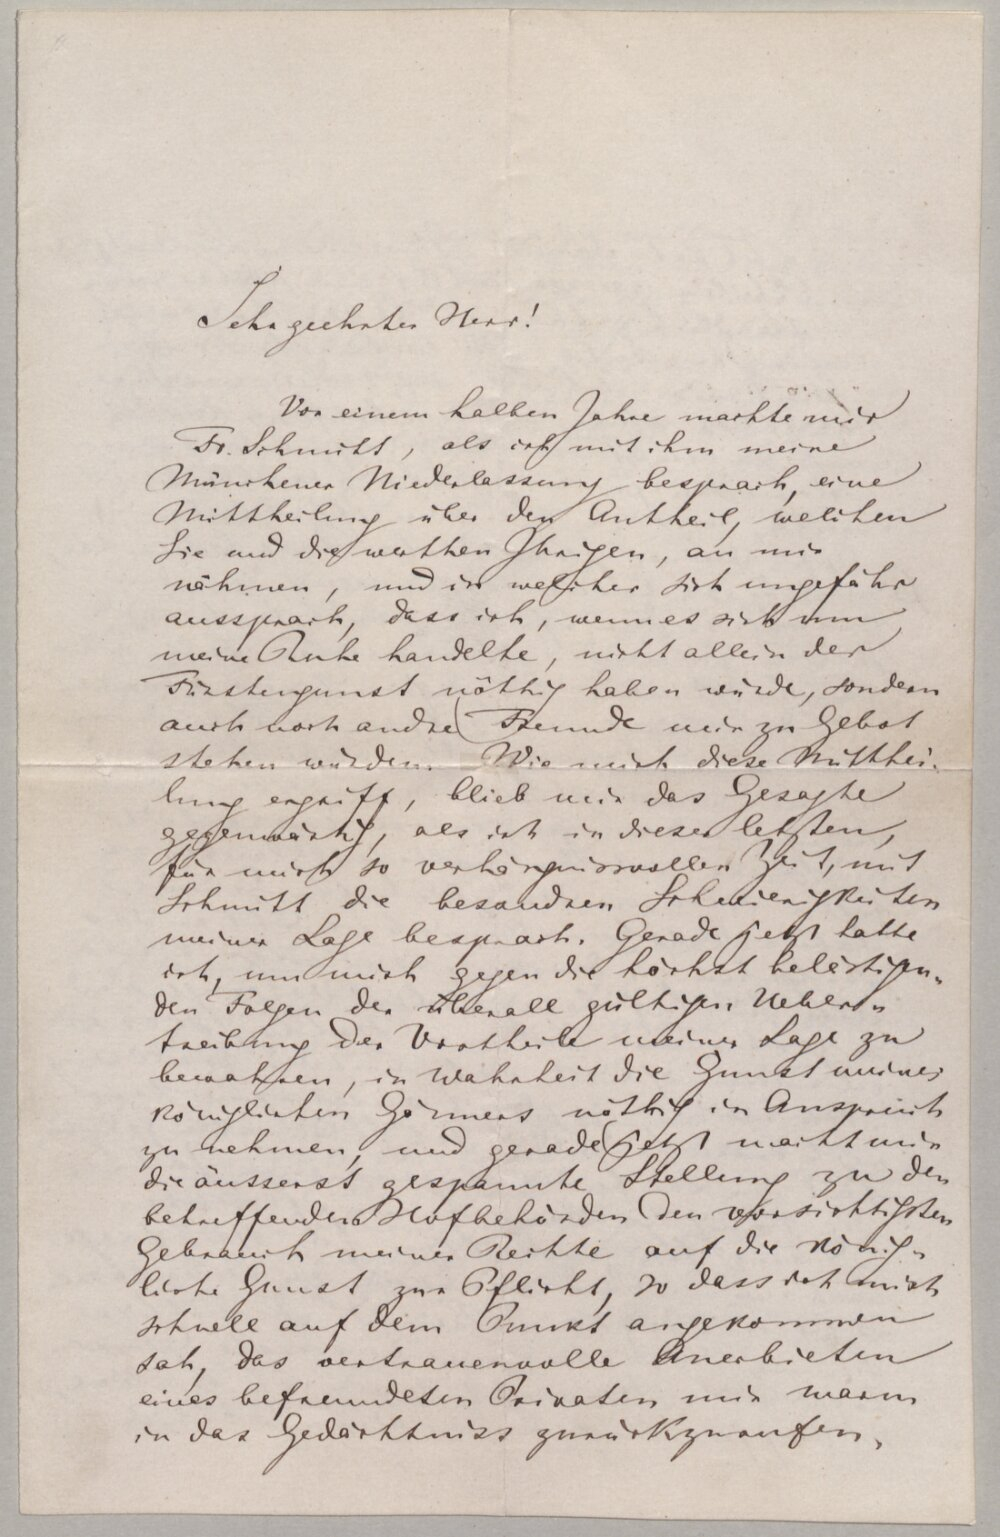 Sehr geehrter Herr!
Vor einem halben Jahre machte mir
Fr. Schmitt, als ich mit ihm meine
Münchener Niederlassung besprach, eine
Mittheilung über den Antheil, welchen
Sie und die werthen Ihrigen, an mir
nähmen, und in welcher sich ungefähr
aussprach, dass ich, wenn es sich um
meine Ruhe handelte, nicht allein der
Fürstengunst nöthig haben würde, sondern
auch noch andre Freunde mir zu Gebot
stehen würden. Wie mich diese Mitthei-
lung ergriff, blieb mir das Gesagte
gegenwärtig, als ich in dieser letzten,
für mich so verhängnissvollen Zeit, mit
Schmitt die besondren Schwierigkeiten
meiner Lage besprach. Gerade jetzt hatte
ich, um mich gegen die höchst belästigen-
den Folgen der überall gültigen Ueber-
treibung der Vortheile meiner Lage zu
bewahren, in Wahrheit die Gunst meines
königlichen Gönners nöthig in Anspruch
zu nehmen, und gerade jetzt macht mir
die äusserst gespannte Stellung zu den
betreffenden Hofbehörden den vorsichtigsten
Gebrauch meiner Rechte auf die könig-
liche Gunst zur Pflicht, so dass ich mich
schnell auf dem Punkt angekommen
sah, das vertrauenvolle Anerbieten
eines befreundeten Privaten mir warm
in das Gedächtniss zurückzurufen.